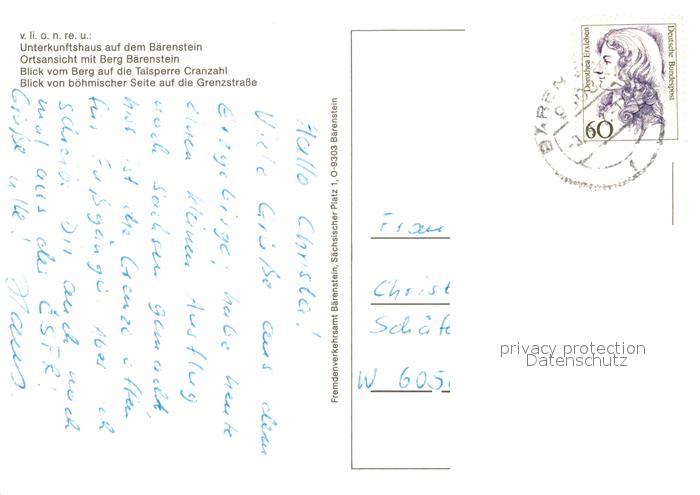 v. li. o. n. re. u.:
Unterkunftshaus auf dem Bärenstein
Ortsansicht mit Berg Bärenstein
Blick vom Berg auf die Talsperre Cranzahl
Blick von böhmischer Seite auf die Grenzstraße
Hallo Christa!
Viele Grüße aus dem
Erzgebirge; habe heute
einen kleinen Ausflug
nach Sachsen gemacht,
hier ist die Grenze offen
für Fußgänger. Aber ich
schreib Dir auch noch
mal aus der ČSFR!
Grüße alle!
Fremdenverkehrsamt Bärenstein, Sächsischer Platz 1, O-9303 Bärenstein
Dorothea Erxleben
Deutsche Bundespost
60
BÄREN
Frau
Christ
Schäfe
W 605
privacy protection
Datenschutz